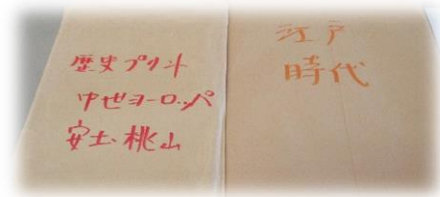 歴史プリント
中世ヨーロッパ
安土桃山
江戸
時代